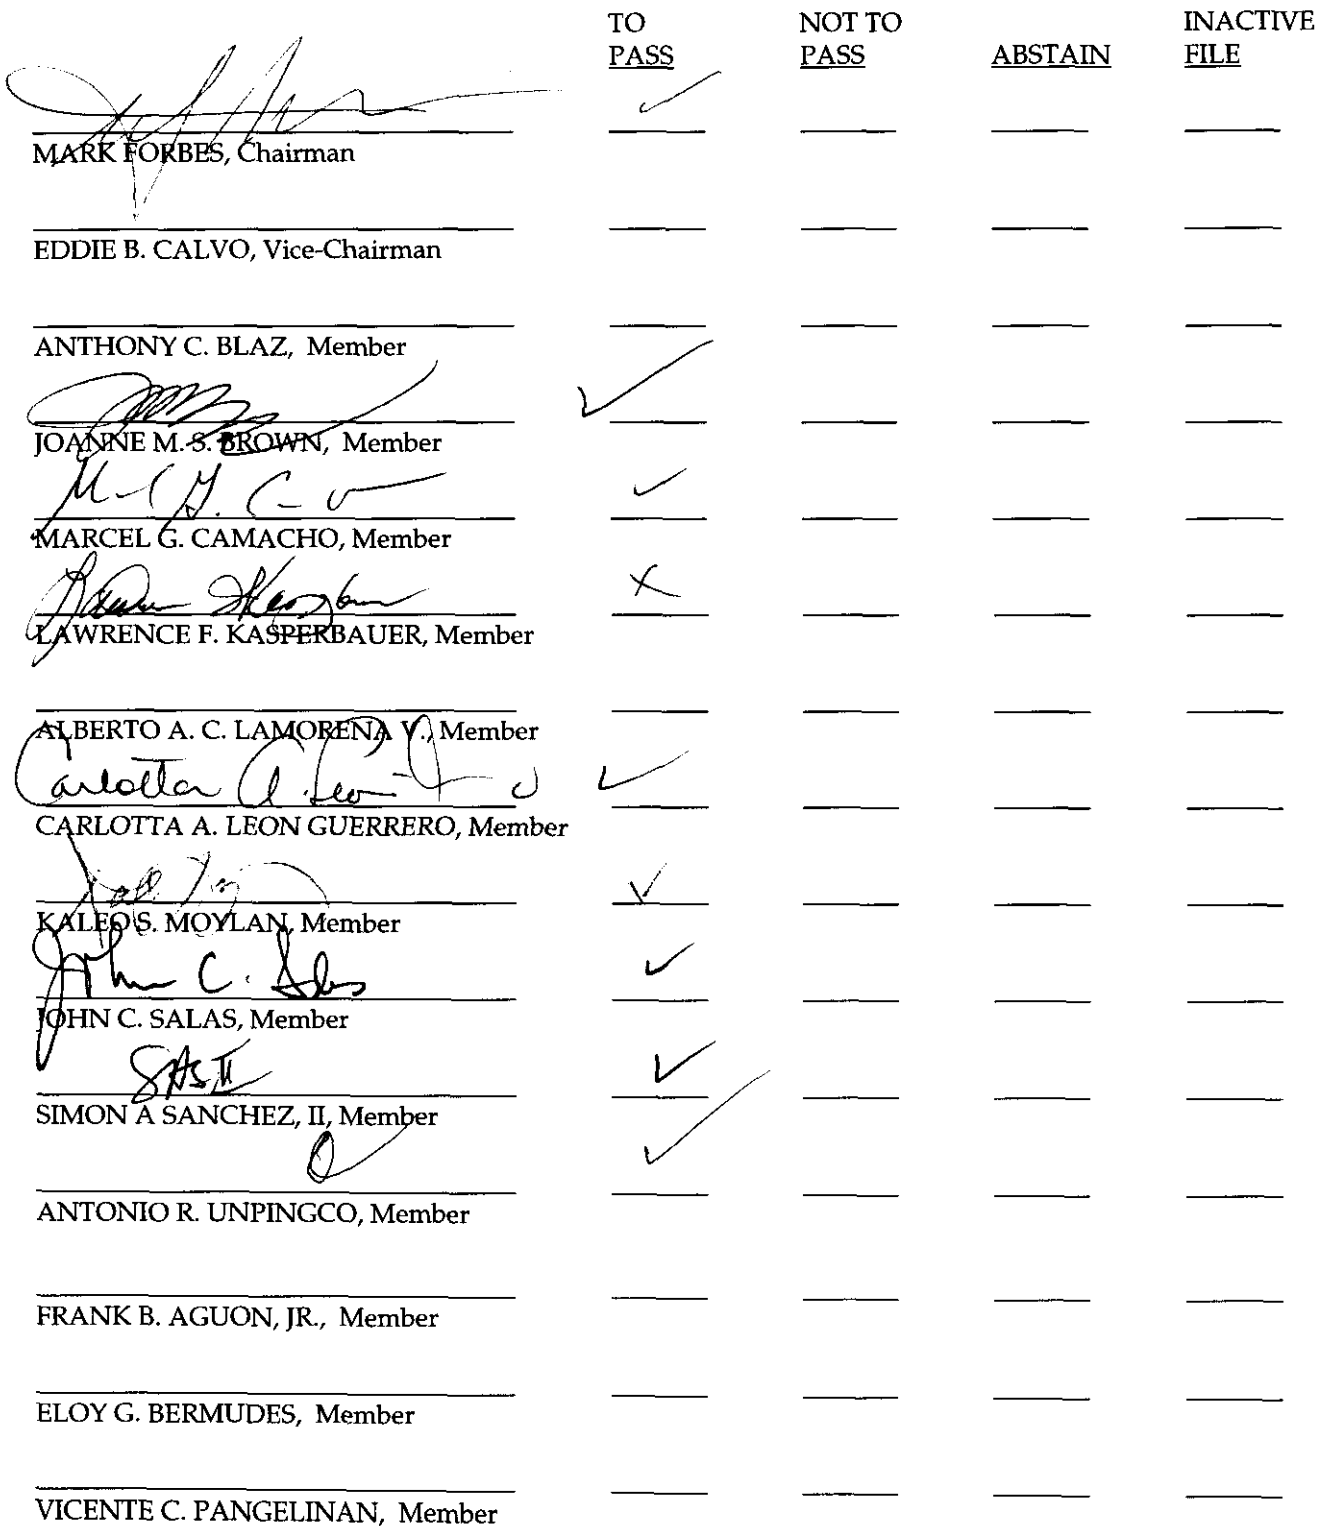 TO NOT TO INACTIVE
PASS PASS ABSTAIN FILE
MARK FORBES, Chairman
EDDIE B. CALVO, Vice-Chairman
ANTHONY C. BLAZ, Member
JOANNE M. S. BROWN, Member
MARCEL G. CAMACHO, Member
LAWRENCE F. KASPERBAUER, Member
ALBERTO A. C. LAMORENA V., Member
Carlotta A. Leon
CARLOTTA A. LEON GUERRERO, Member
KALEO S. MOYLAN, Member
John C. Salas
JOHN C. SALAS, Member
SAS II
SIMON A SANCHEZ, II, Member
ANTONIO R. UNPINGCO, Member
FRANK B. AGUON, JR., Member
ELOY G. BERMUDES, Member
VICENTE C. PANGELINAN, Member